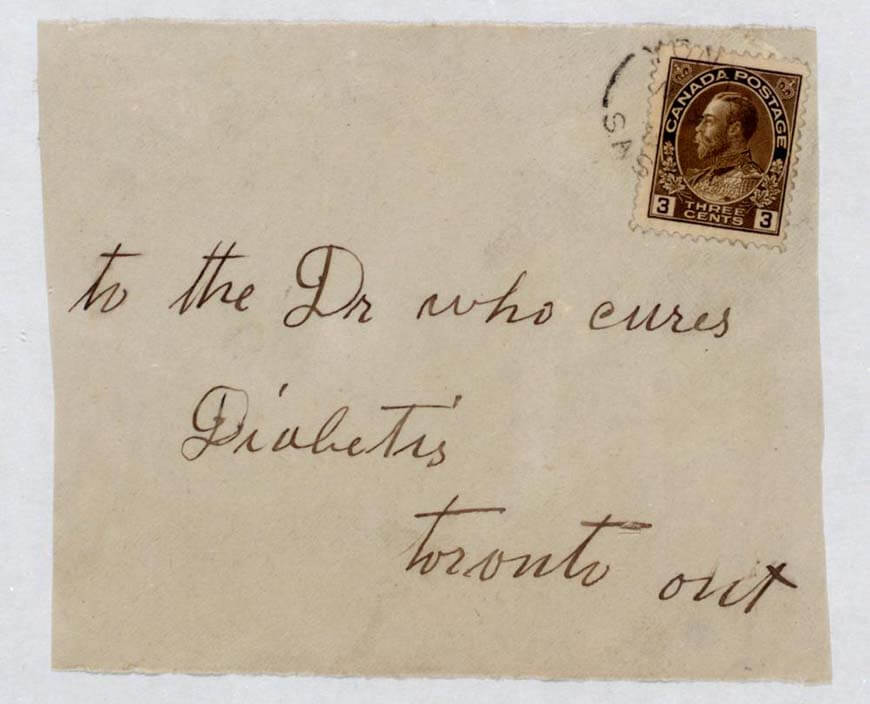 CANADA POSTAGE
3 THREE CENTS 3
SAS
to the Dr who cures
Diabetis
toronto ont